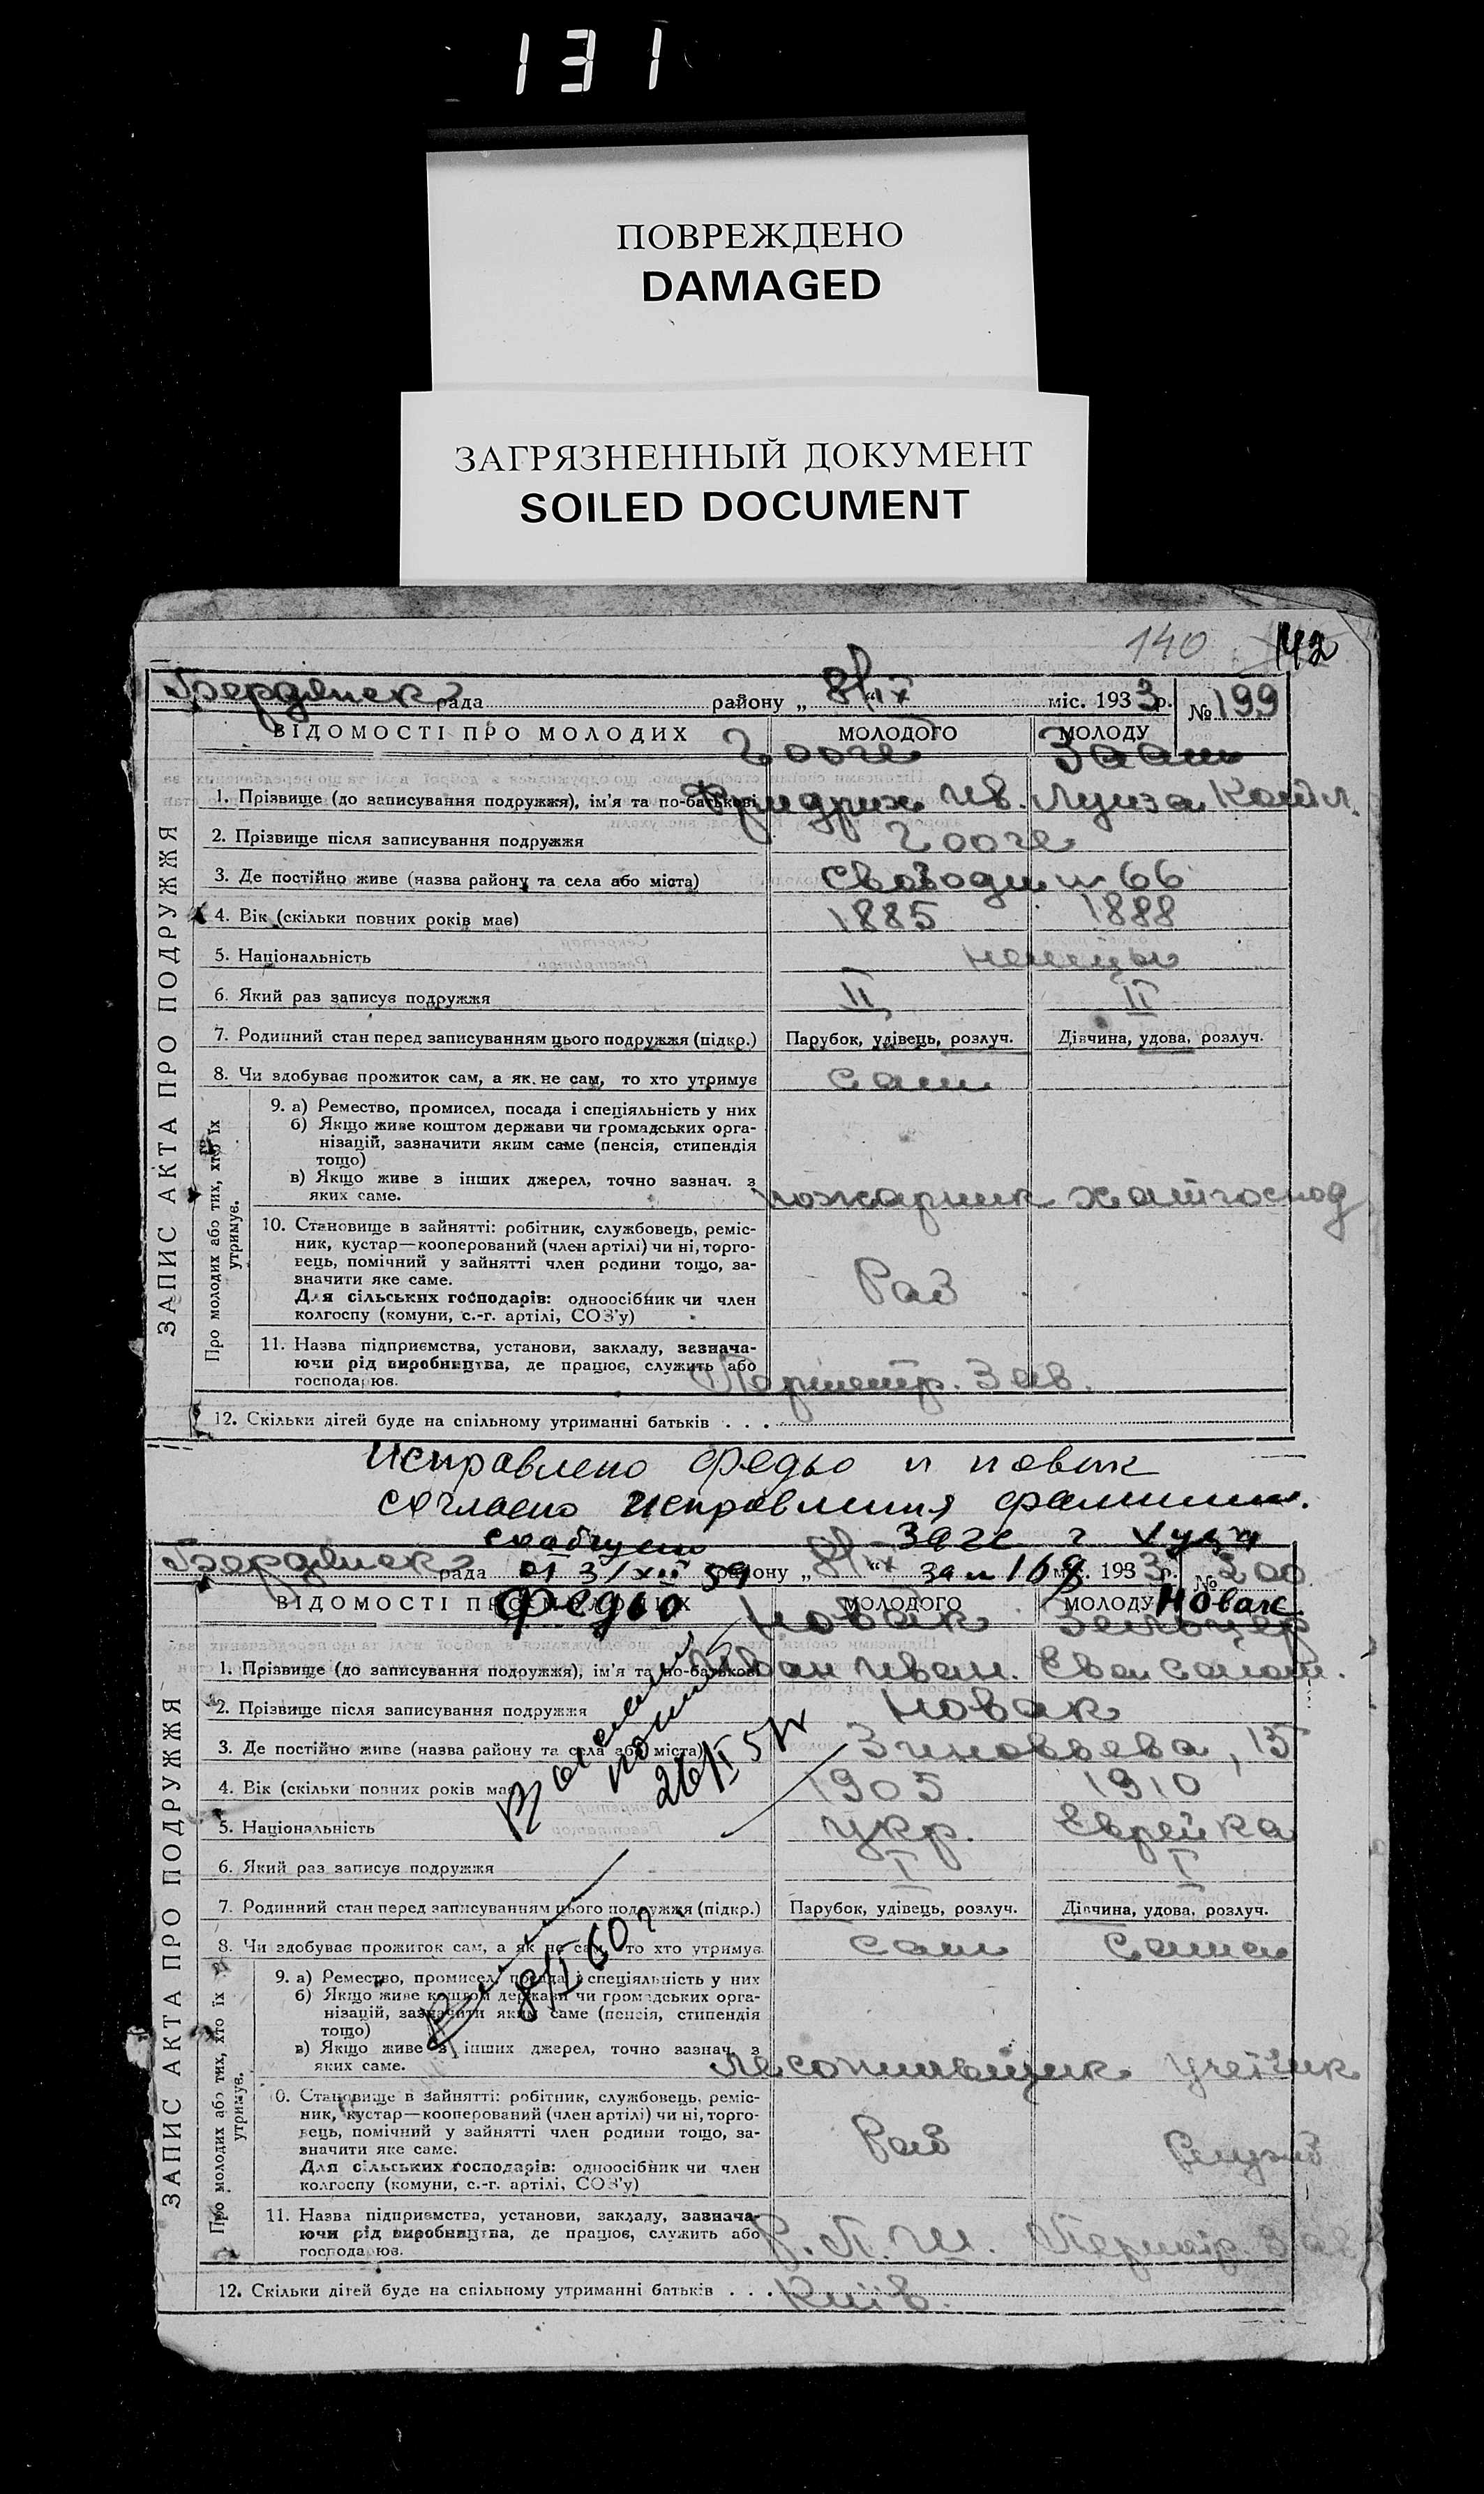 131
ПОВРЕЖДЕНО
DAMAGED
ЗАГРЯЗНЕННЫЙ ДОКУМЕНТ
SOILED DOCUMENT
140 142
Бердянск рада району „8/IX“ міс. 1933 р. № 199
ВІДОМОСТІ ПРО МОЛОДИХ МОЛОДОГО МОЛОДУ
Гооге
1. Прізвище (до записування подружжя), ім'я та по-батькові Фридрих Ив. Луиза
2. Прізвище після записування подружжя Гооге
3. Де постійно живе (назва району та села або міста) Свободи 66
4. Вік (скільки повних років має) 1885 1888
5. Національність немецы
6. Який раз записує подружжя II II
7. Родинний стан перед записуванням цього подружжя (підкр.) Парубок, удівець, розлуч. Дівчина, удова, розлуч.
8. Чи здобуває прожиток сам, а як не сам, то хто утримує сам
9. а) Ремество, промисел, посада і спеціяльність у них
б) Якщо живе коштом держави чи громадських орга-
нізацій, зазначити яким саме (пенсія, стипендія
тощо)
в) Якщо живе з інших джерел, точно зазнач. з
яких саме. пожарник хатгоспод
10. Становище в зайнятті: робітник, службовець, реміс-
ник, кустар—кооперований (член артілі) чи ні, торго-
вець, помічний у зайнятті член родини тощо, за-
значити яке саме. Раб
Для сільських господарів: одноосібник чи член
колгоспу (комуни, с.-г. артілі, СОЗ'у)
11. Назва підприємства, установи, закладу, зазнача-
ючи рід виробництва, де працює, служить або
господарює. Зав.
12. Скільки дітей буде на спільному утриманні батьків . . .
ЗАПИС АКТА ПРО ПОДРУЖЖЯ
Про молодих або тих, хто їх утримує.
Исправлено Федьо и новак
согласно исправления фамилии.
Бердянск рада 31/XII 59 району „8/IX“ за № 168 міс. 1933 р. № 200
ВІДОМОСТІ ПРО МОЛОДИХ МОЛОДОГО МОЛОДУ Новак
Федьо Новак Зельцер
1. Прізвище (до записування подружжя), ім'я та по-батькові Иван Иван. Ева
2. Прізвище після записування подружжя Новак
3. Де постійно живе (назва району та села або міста) Зиновьева, 15
4. Вік (скільки повних років має) 1905 1910
5. Національність укр. Еврейка
6. Який раз записує подружжя I I
7. Родинний стан перед записуванням цього подружжя (підкр.) Парубок, удівець, розлуч. Дівчина, удова, розлуч.
8. Чи здобуває прожиток сам, а як не сам, то хто утримує сам сама
8/I 60 г.
9. а) Ремество, промисел, посада і спеціяльність у них
б) Якщо живе коштом держави чи громадських орга-
нізацій, зазначити яким саме (пенсія, стипендія
тощо)
в) Якщо живе з інших джерел, точно зазнач. з
яких саме. учетчик
10. Становище в зайнятті: робітник, службовець, реміс-
ник, кустар—кооперований (член артілі) чи ні, торго-
вець, помічний у зайнятті член родини тощо, за-
значити яке саме. Раб
Для сільських господарів: одноосібник чи член
колгоспу (комуни, с.-г. артілі, СОЗ'у)
11. Назва підприємства, установи, закладу, зазнача-
ючи рід виробництва, де працює, служить або
господарює.
12. Скільки дітей буде на спільному утриманні батьків . . . Київ.
ЗАПИС АКТА ПРО ПОДРУЖЖЯ
Про молодих або тих, хто їх утримує.